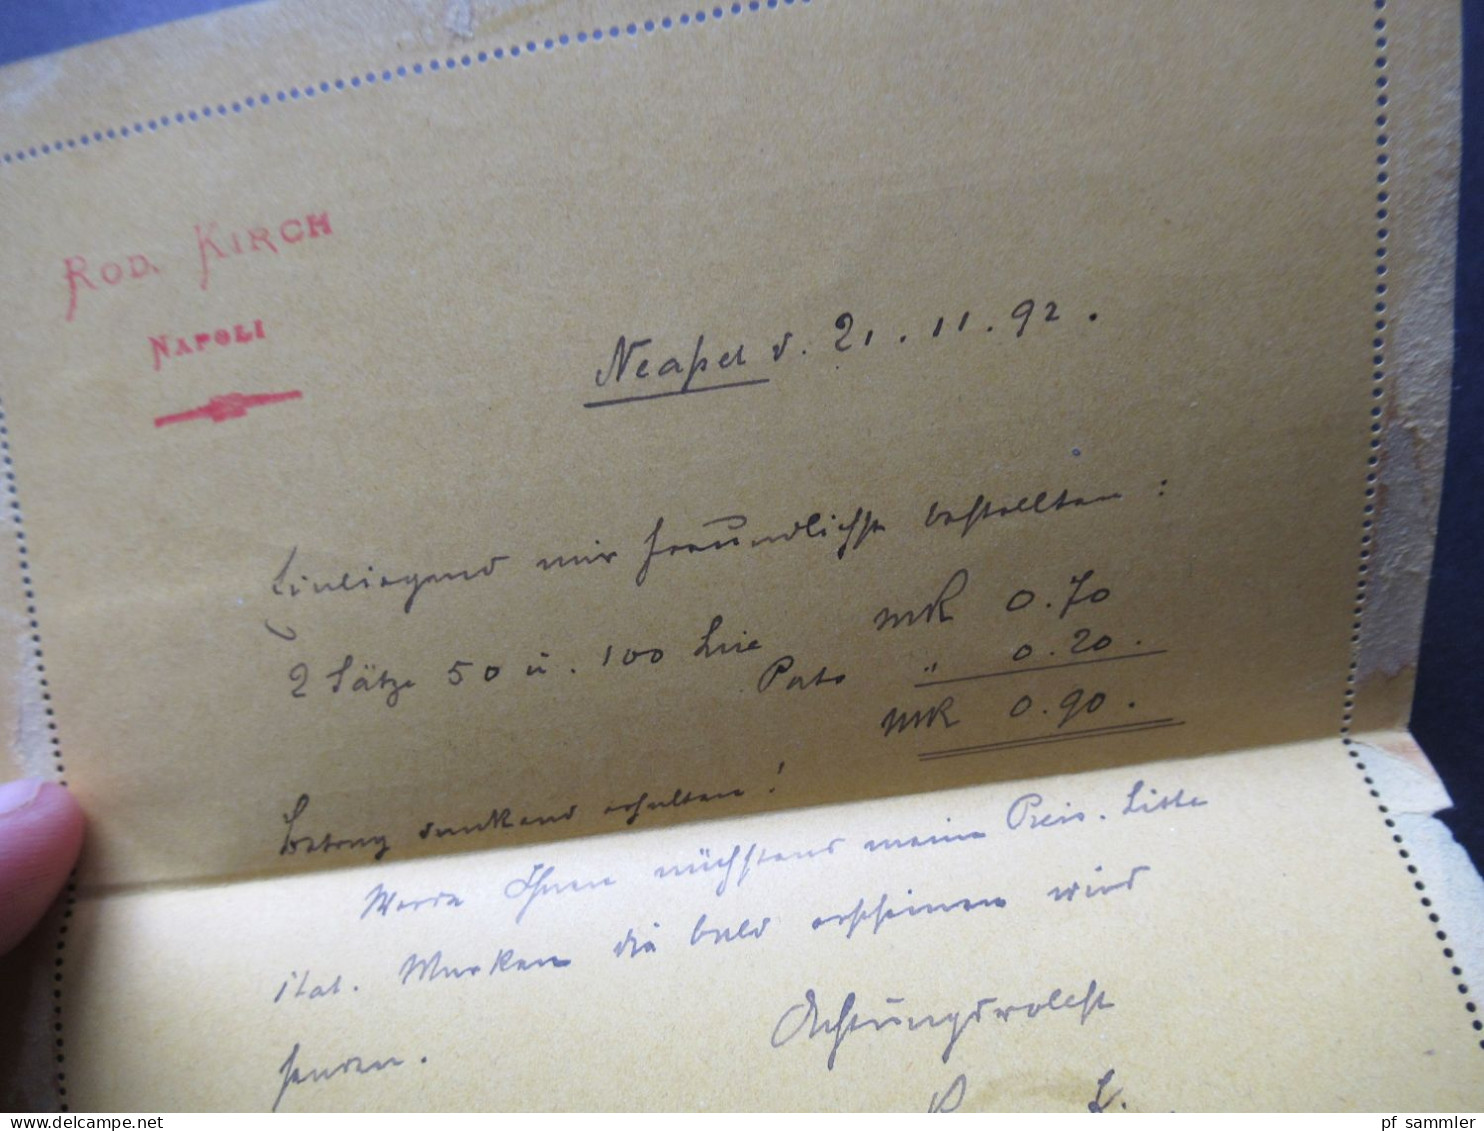 ROD. KIRCH
NAPOLI
Neapel d. 21. 11. 92.
Einliegend mir freundlichst bestellten :
2 Sätze 50 u. 100 Lire MK 0.70
Porto " 0.20.
MK 0.90.
Betrag dankend erhalten!
Werde Ihnen nächstens meine Preis-Liste
ital. Marken die bald erscheinen wird
senden.
Achtungsvollst
pf sammler
delcampe.net